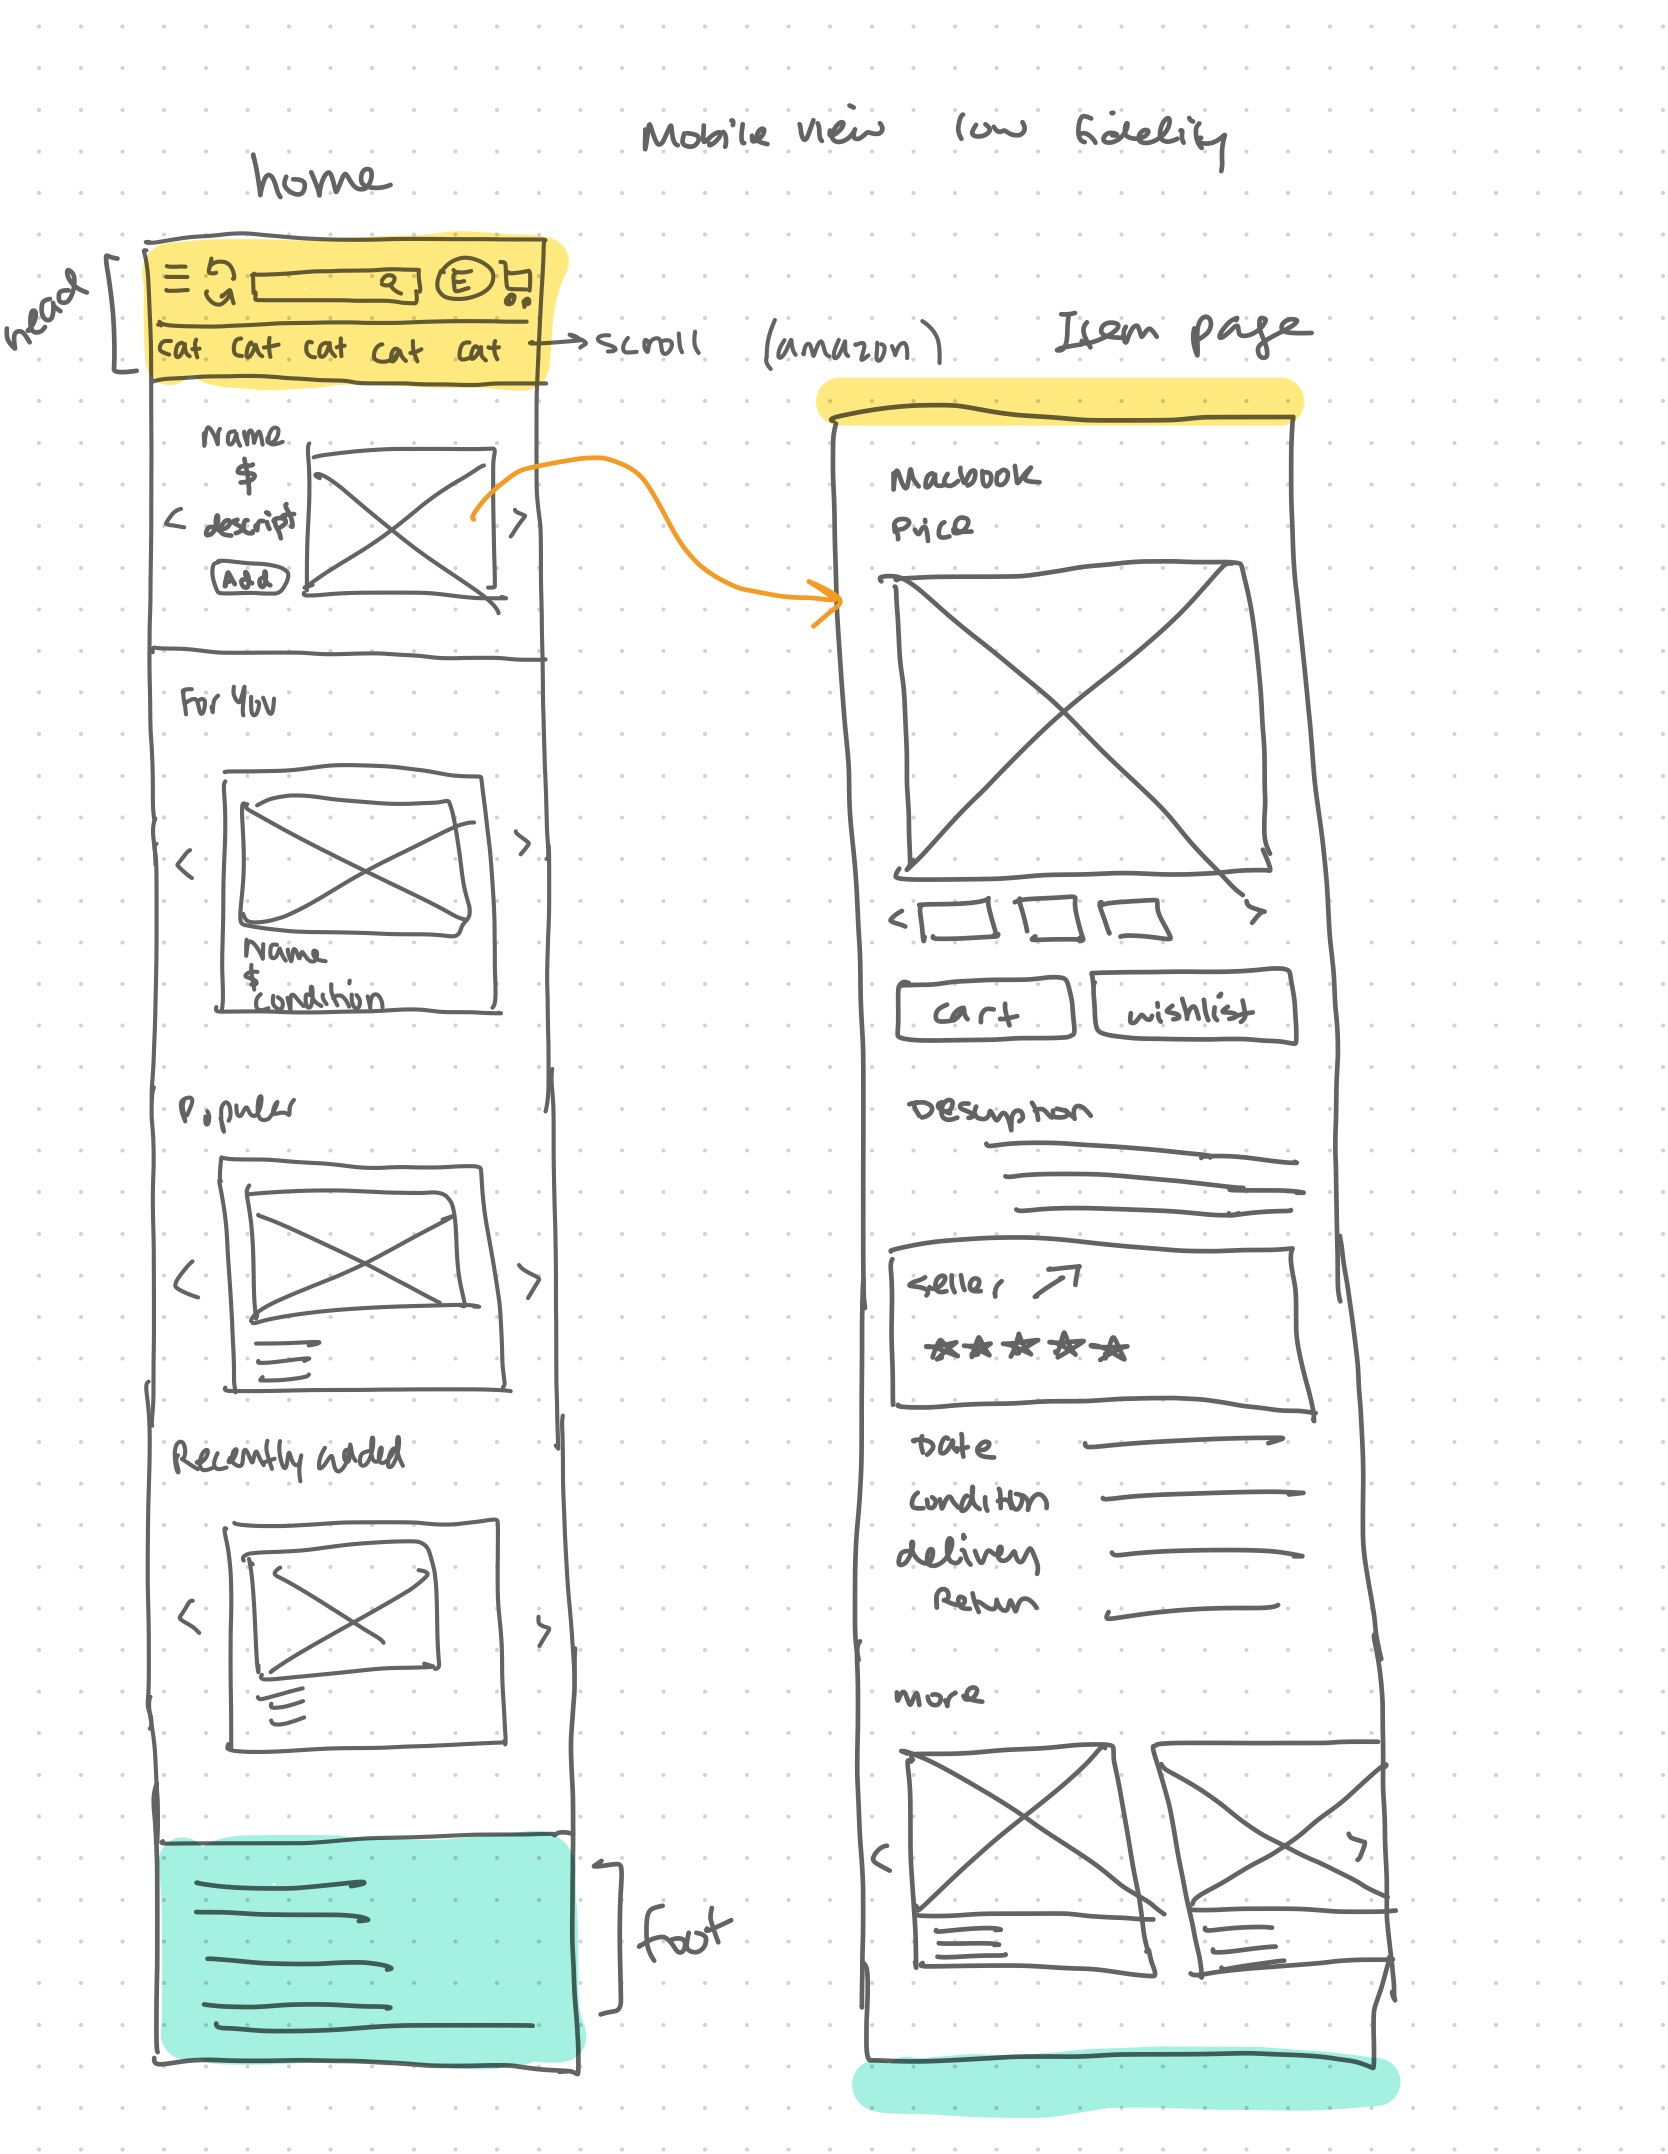 Mobile view low fidelity
home
head
E
cat cat cat cat cat
scroll (amazon)
Name
$
descript
Add
For You
Name
$
condition
Populer
Recently added
foot
Item page
Macbook
Price
cart
wishlist
Description
Seller
Date
condition
delivery
Return
more